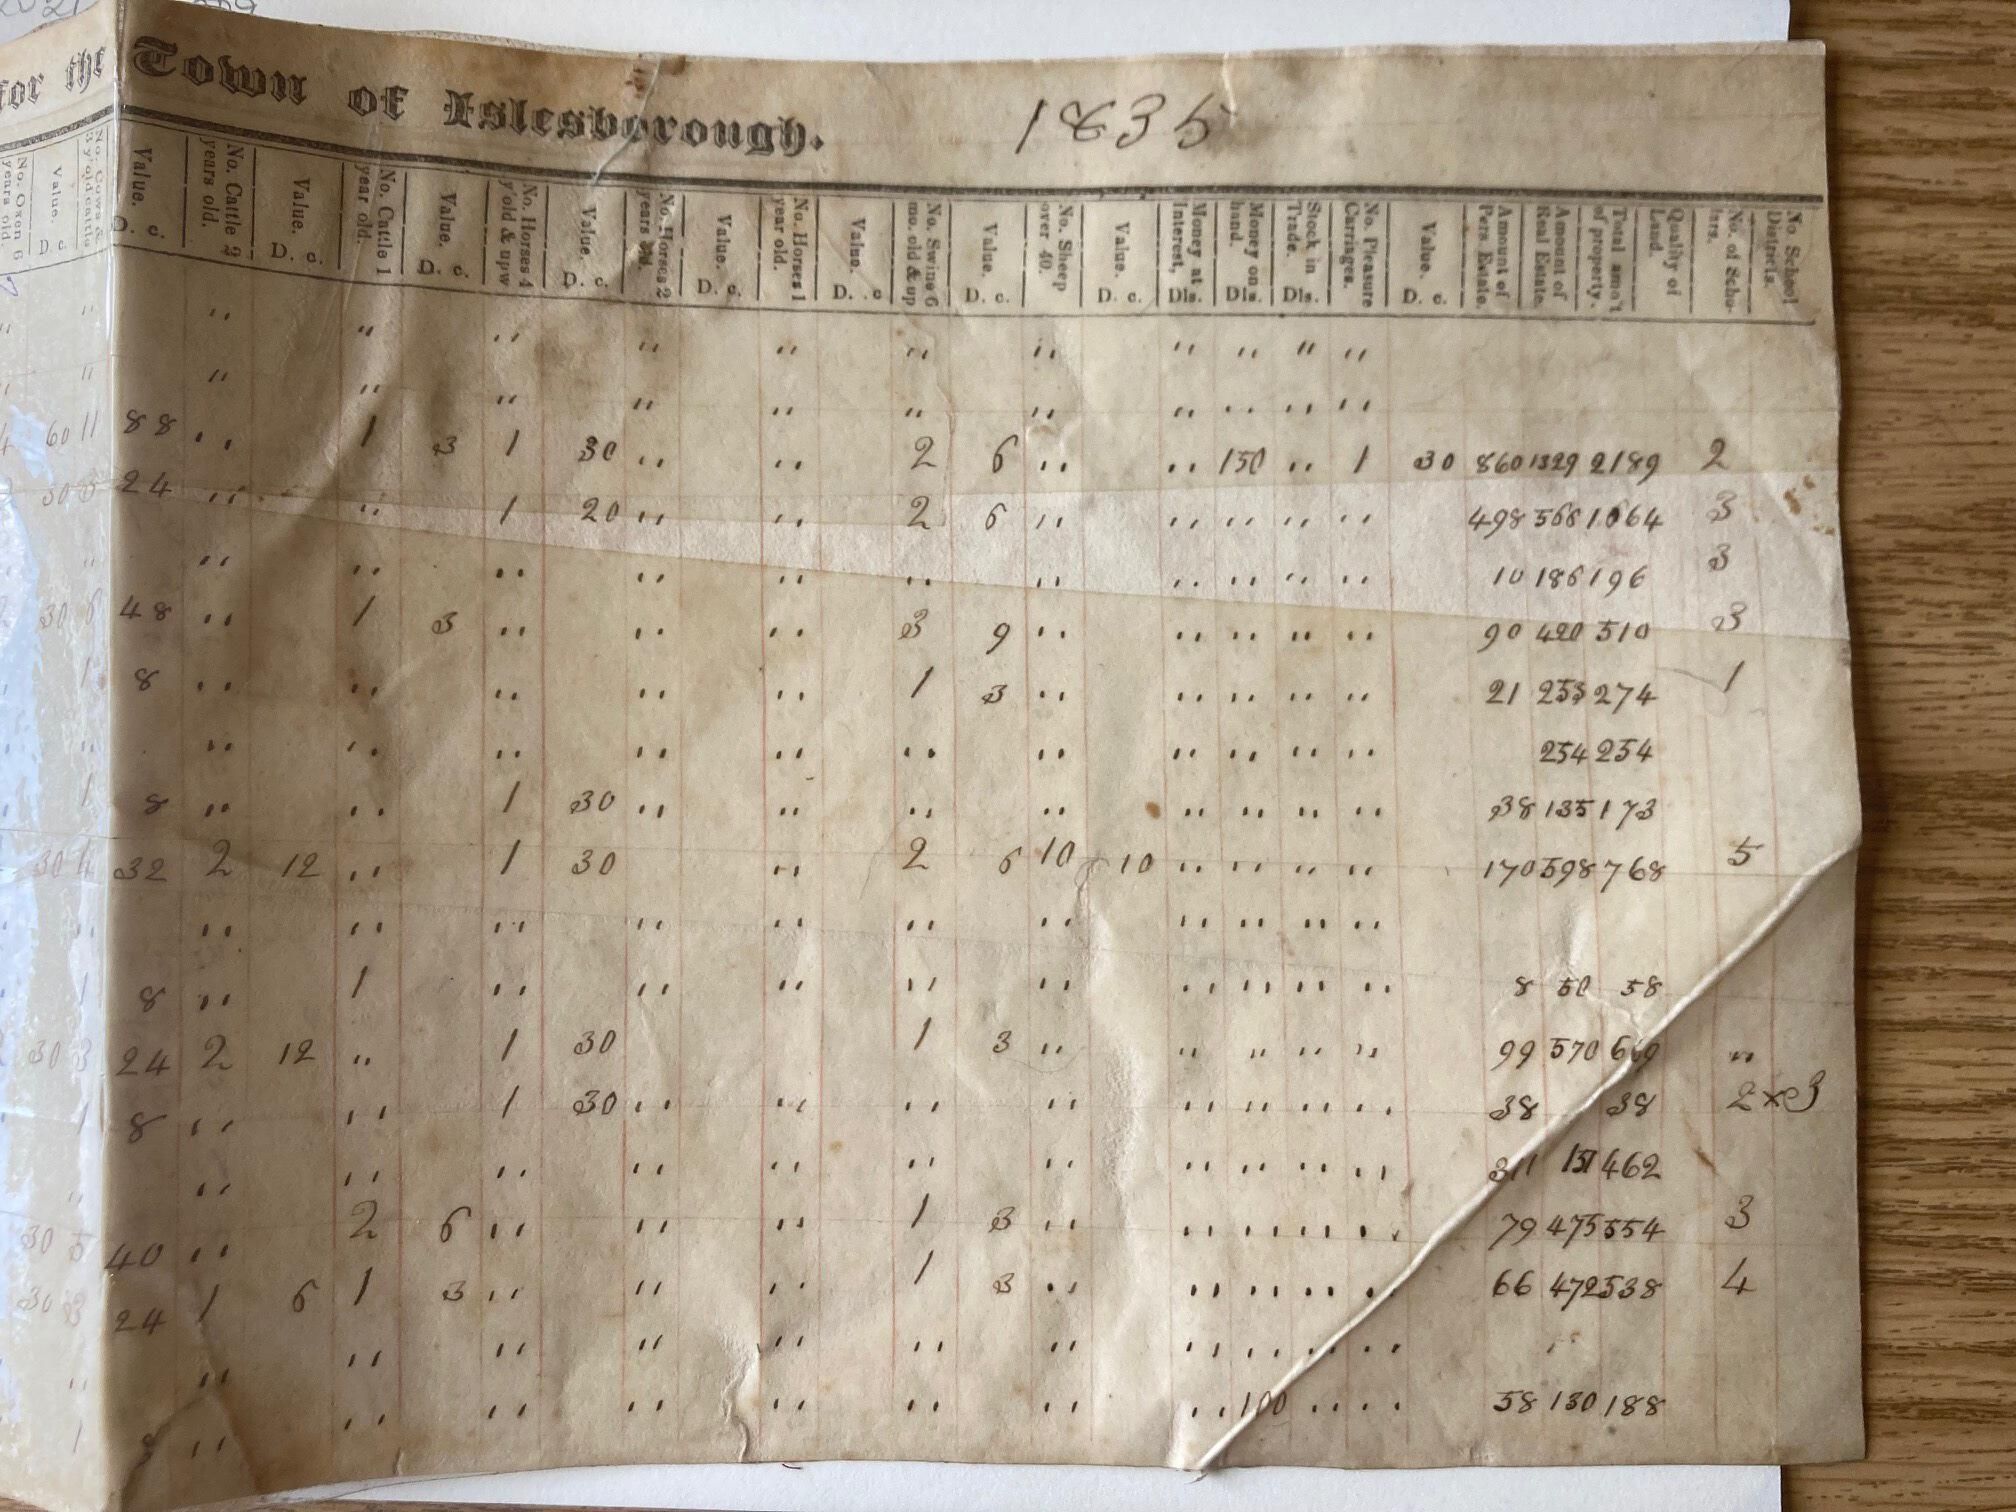 for the Town of Islesborough. 1835
No. Cows & 3 y'old cattle Value. D. c. No. Cattle 2 years old. Value. D. c. No. Cattle 1 year old. Value. D. c. No. Horses 4 y'old & upw Value. D. c. No. Horses 2 years old. Value. D. c. No. Horses 1 year old. Value. D. c No. Swine 6 mo. old & up Value. D. c. No. Sheep over 40. Value. D. c. Money at Interest, Dls. Money on hand. Dls. Stock in Trade. Dls. No. Pleasure Carriages. Value. D. c. Amount of Pers Estate. Amount of Real Estate. Total amo't of property. Quality of Land. No. of Scholars. No. School Districts.
" " " " " " " " " " "
" " " " " " " " " " "
60 11 88 " 1 3 1 30 " " 2 6 " " 150 " 1 30 860 1329 2189 2
30 3 24 " " 1 20 " " 2 6 " " " " " 498 566 1064 3
" " " " " " " " " " " 10 186 196 3
30 6 48 " 1 3 " " " 3 9 " " " " " 90 420 510 3
1 8 " " " " " 1 3 " " " " " 21 253 274 1
" " " " " " " " " " " 254 254
1 8 " " 1 30 " " " " " " " " 38 135 173
30 4 32 2 12 " 1 30 " 2 6 10 10 " " " " 170 598 768 5
" " " " " " " " " " "
1 8 " 1 " " " " " " " " " 8 50 58
30 3 24 2 12 " 1 30 1 3 " " " " " 99 570 669 "
1 8 " " 1 30 " " " " " " " " 38 38 2 x 3
" " " " " " " " " " " 311 151 462
30 5 40 " 2 6 " " " 1 3 " " " " " 79 475 554 3
30 3 24 1 6 1 3 " " " 1 3 " " " " " 66 472 538 4
" " " " " " " " " " "
1 8 " " " " " " " " 100 " " 58 130 188